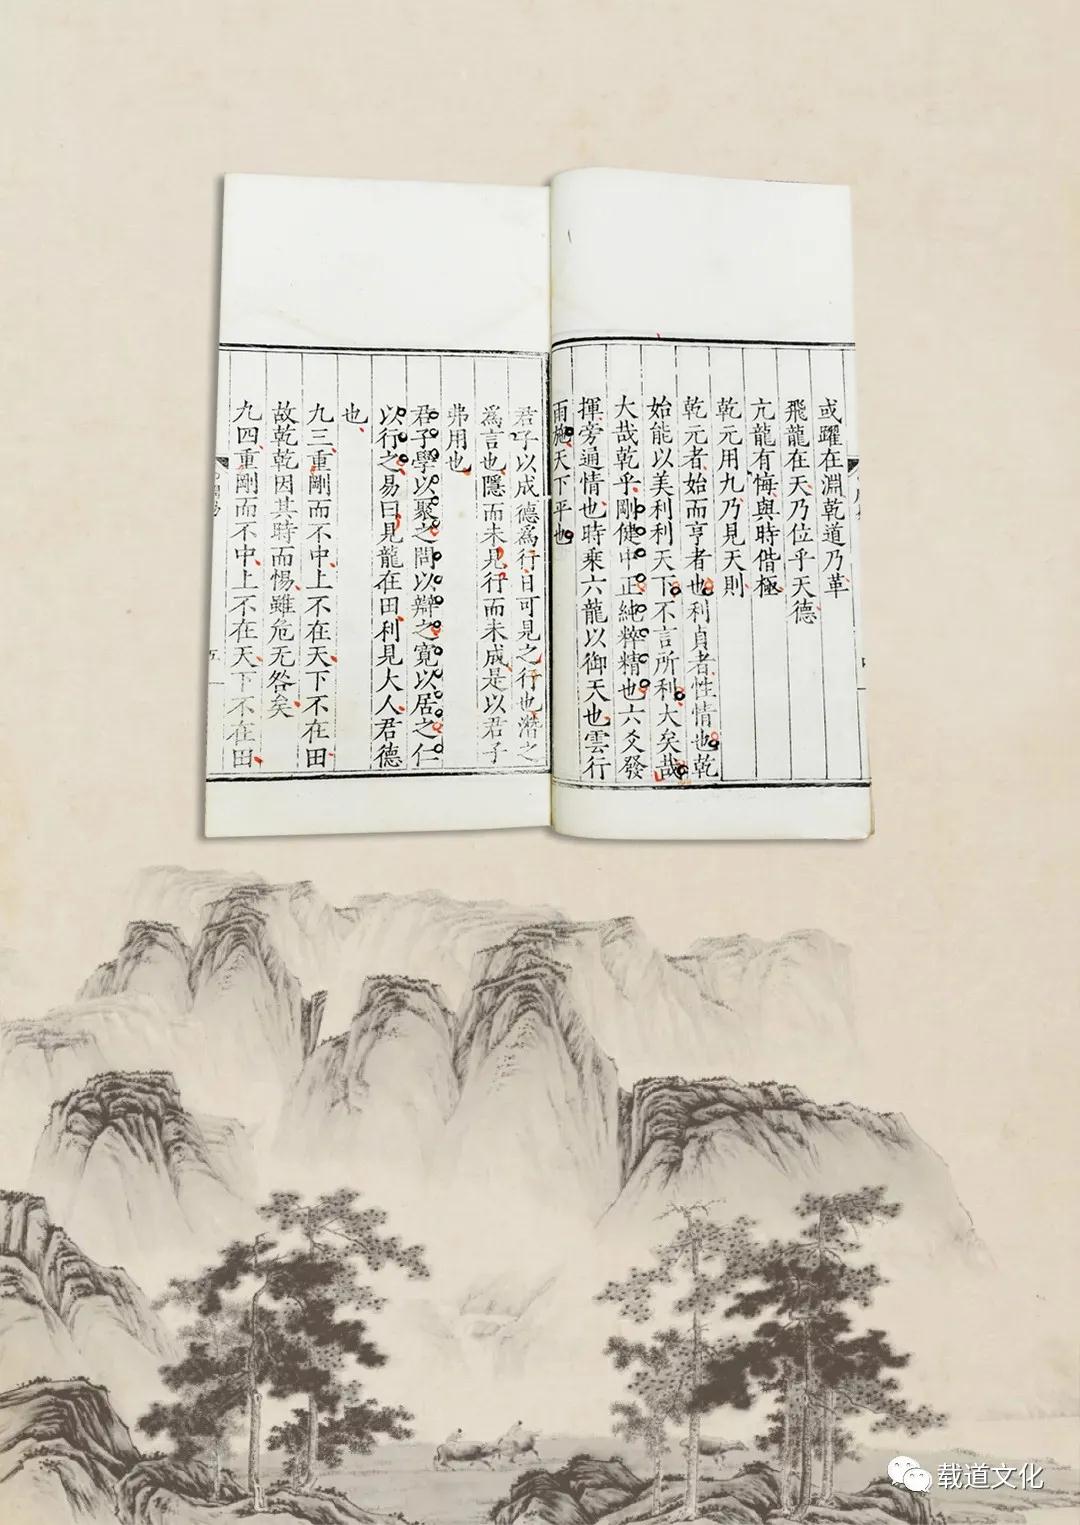 或躍在淵乾道乃革
飛龍在天乃位乎天德
亢龍有悔與時偕極
乾元用九乃見天則
乾元者始而亨者也利貞者性情也乾
始能以美利利天下不言所利大矣哉
大哉乾乎剛健中正純粹精也六爻發
揮旁通情也時乘六龍以御天也雲行
雨施天下平也
君子以成德為行日可見之行也潛之
為言也隱而未見行而未成是以君子
弗用也
君子學以聚之問以辯之寬以居之仁
以行之易曰見龍在田利見大人君德
也
九三重剛而不中上不在天下不在田
故乾乾因其時而惕雖危无咎矣
九四重剛而不中上不在天下不在田
五
载道文化